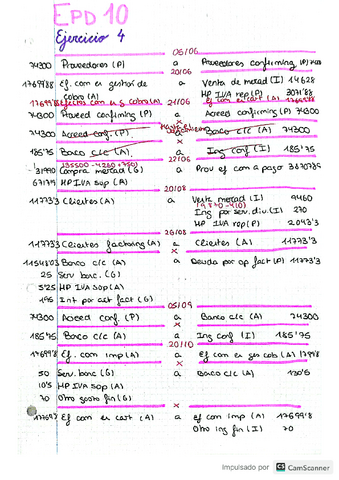 EPD 10
Ejercicio 4
06/06
74300 Proveedores (P) a Proveedores confirming (P) 74300
20/06
17699'88 Ef. com en gestión de cobro (A) a Venta de mercad (I) 14628
HP IVA rep (P) 3071'88
17699'88 Efectos com en g cobro (A) 21/06 ef com en cart (A) 17699'88
74300 Proveed confirming (P) a Acreed confirming (P) 74300
74300 Acreed conf. (P) a Banco c/c (A) 74300
185'75 Banco c/c (A) a Ing conf (I) 185'75
22/06
31990 Compra mercad (G) a Prov ef com a pagar
HP IVA sop (A)
20/08
11773'3 Clientes (A) a Venta mercad (I) 9460
Ing por serv. div. (I) 270
HP IVA rep (P) 2043'3
26/08
11773'3 Clientes factoring (A) a Clientes (A) 11773'3
x
Banco c/c (A) a Deuda por op fact (P) 11773'3
25 Serv banc. (G)
5'25 HP IVA sop (A)
195 Int por dat fact (G)
05/09
74300 Acreed conf. (P) a Banco c/c (A) 74300
x
185'75 Banco c/c (A) a Ing conf (I) 185'75
20/10
17699'8 Ef. com imp (A) a Ef com en ges cob (A)
x
50 Serv banc (G) a Banco c/c (A) 130'5
10'5 HP IVA sop (A)
70 Otro gasto fin (G)
x
Ef com en cart (A) a ef com imp (A) 17699'8
Otro ing fin (I) 70
Impulsado por CS CamScanner